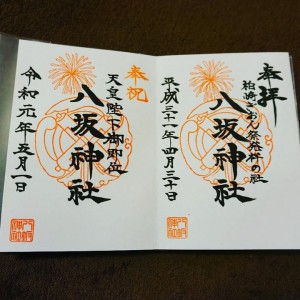 奉拝
柏崎ぎおん祭発祥の社
八坂神社
平成三十一年四月三十日
奉祝
天皇陛下御即位
八坂神社
令和元年五月一日